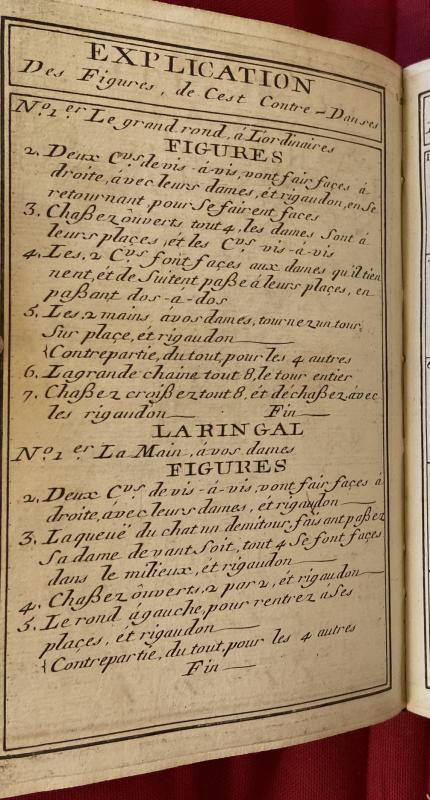 EXPLICATION
Des Figures, de Cest Contre-Danses
No. 1.er Le grand rond, á L'ordinaires
FIGURES
2. Deux C.vs de vis-á-vis, vont fair façes á
droite, ávec leurs dames, ét rigaudon, en se
retournant pour se fairent faces
3. Chaßez óuverts tout 4, les dames sont á
leurs plaçes, ét les C.vs vis-á-vis
4. Les, 2 C.vs font façes aux dames qu'il tien
nent, ét de suitent paße á leurs plaçes, en
paßant dos-a-dos
5. Les, 2 mains a vos dames, tournez un tour,
sur plaçe, ét rigaudon
Contrepartie, du tout, pour les 4 autres
6. La grande chaine tout 8, le tour entier
7. Chaßez croißez tout 8, ét déchaßez, ávec
les rigaudon Fin
LARINGAL
No. 1.er La Main, á vos dames
FIGURES
2. Deux C.vs de vis-á-vis, vont fair façes á
droite, avec leurs dames, ét rigaudon
3. La queuë du chat un demitour, faisant paßez
sa dame de vant soit, tout 4 se font façes
dans le milieux, ét rigaudon
4. Chaßez óuverts, 2 par 2, ét rigaudon
5. Le rond ágauche, pour rentrez á ses
plaçes, ét rigaudon
Contrepartié, du tout, pour les 4 autres
Fin